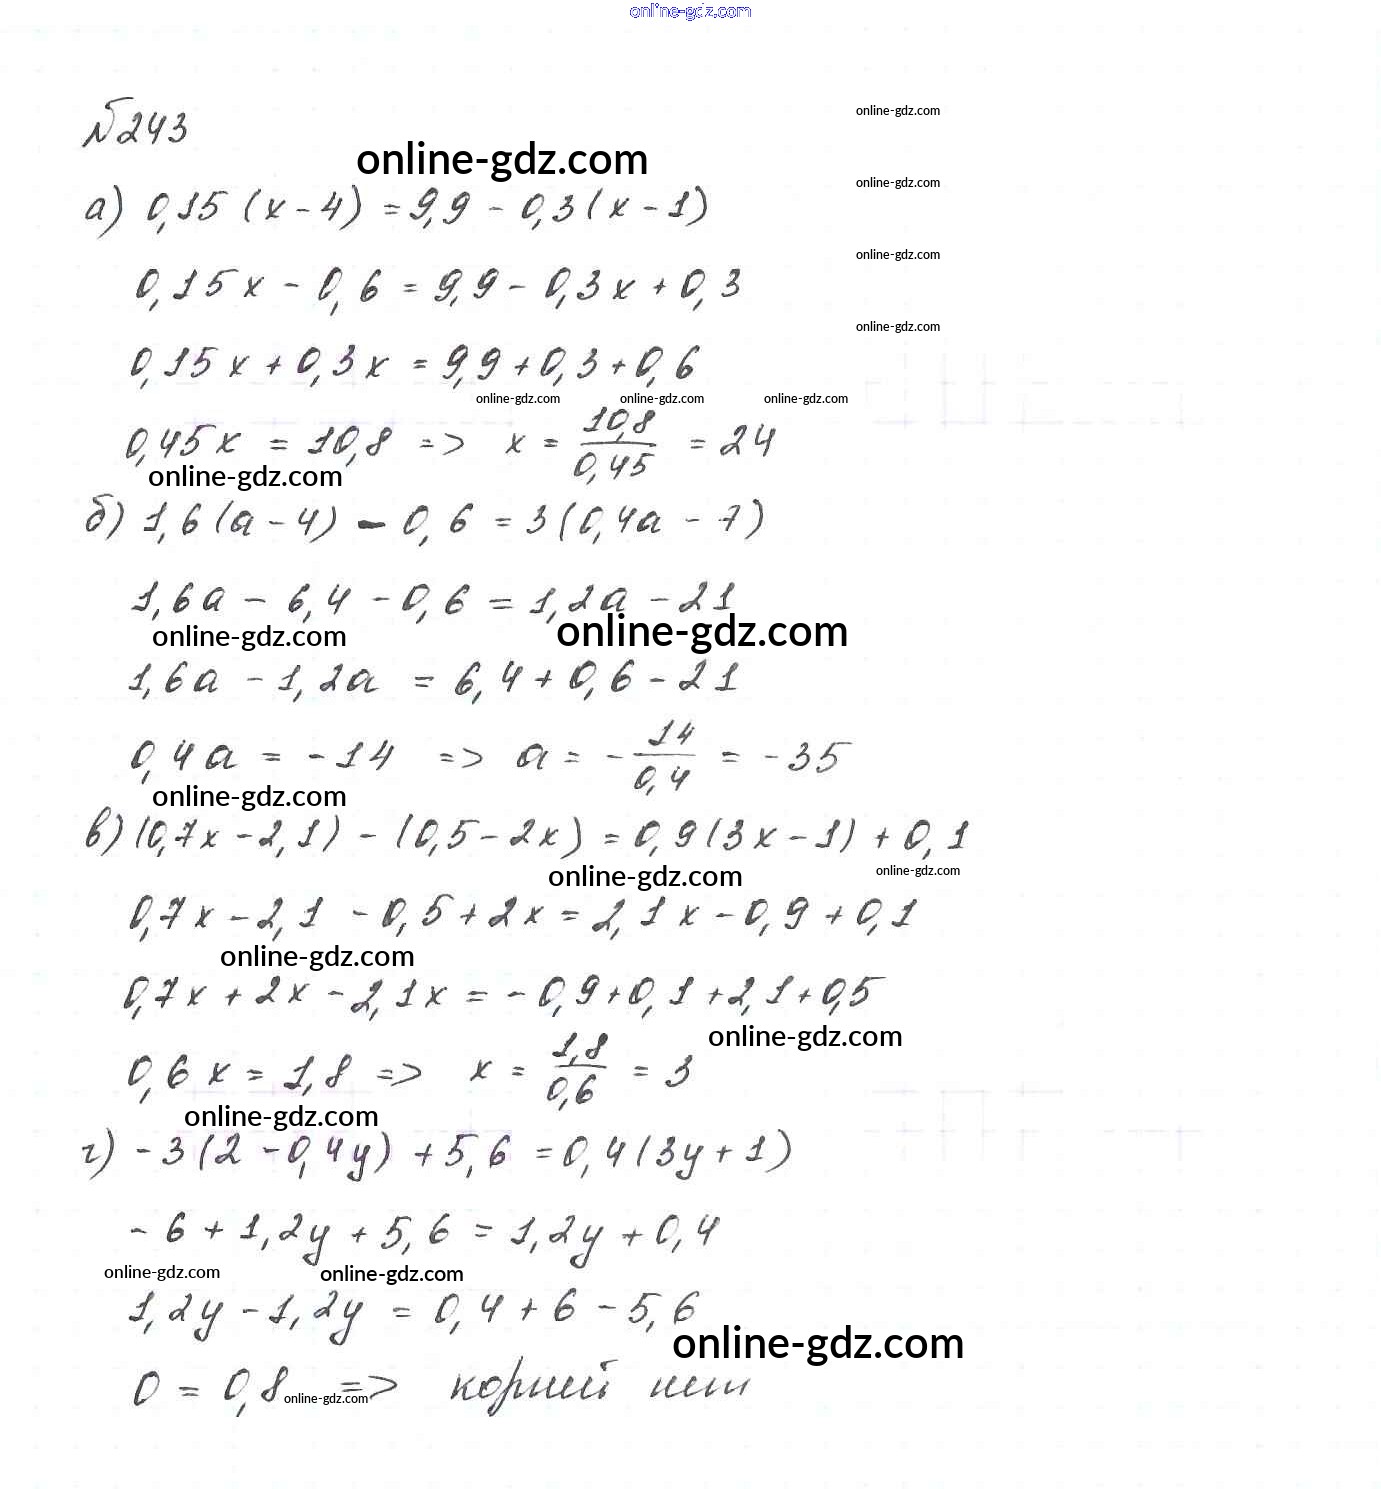 online-gdz.com
№243
online-gdz.com
online-gdz.com
а) 0,15 (x - 4) = 9,9 - 0,3 (x - 1)
online-gdz.com
0,15x - 0,6 = 9,9 - 0,3x + 0,3
online-gdz.com
online-gdz.com
0,15x + 0,3x = 9,9 + 0,3 + 0,6
online-gdz.com online-gdz.com online-gdz.com
0,45x = 10,8 => x = 10,8/0,45 = 24
online-gdz.com
б) 1,6 (a - 4) - 0,6 = 3 (0,4a - 7)
1,6a - 6,4 - 0,6 = 1,2a - 21
online-gdz.com online-gdz.com
1,6a - 1,2a = 6,4 + 0,6 - 21
0,4a = -14 => a = -14/0,4 = -35
online-gdz.com
в) (0,7x - 2,1) - (0,5 - 2x) = 0,9 (3x - 1) + 0,1
online-gdz.com online-gdz.com
0,7x - 2,1 - 0,5 + 2x = 2,1x - 0,9 + 0,1
online-gdz.com
0,7x + 2x - 2,1x = - 0,9 + 0,1 + 2,1 + 0,5
online-gdz.com
0,6x = 1,8 => x = 1,8/0,6 = 3
online-gdz.com
г) -3 (2 - 0,4y) + 5,6 = 0,4 (3y + 1)
-6 + 1,2y + 5,6 = 1,2y + 0,4
online-gdz.com online-gdz.com
1,2y - 1,2y = 0,4 + 6 - 5,6
online-gdz.com
0 = 0,8 => корней нет
online-gdz.com